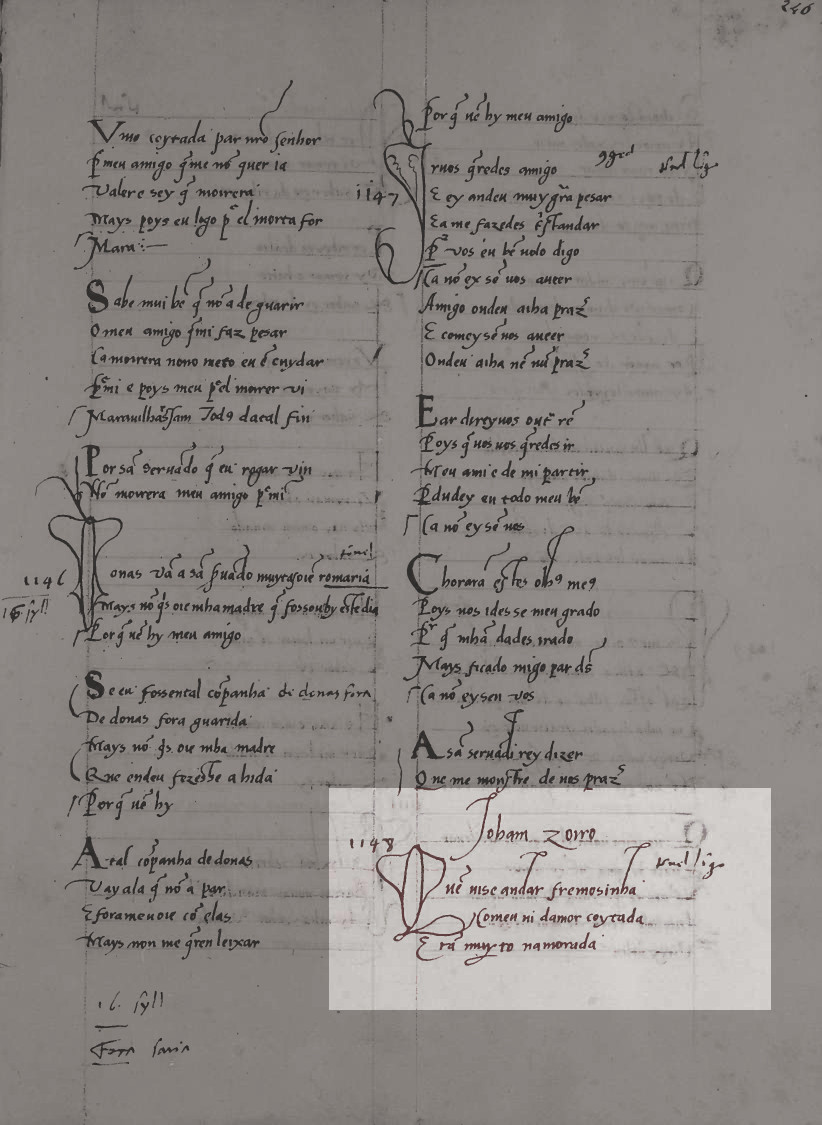 246
Vyuo coytada par nr̃o senhor
P̃ meu amigo q̃ me nõ quer ia
Valer e sey q̃ moirera
Mays poys eu logo p̃ el morta for
Mara:-
Sabe mui bẽ q̃ nõ a de guarir
O meu amigo q̃ mi faz pesar
Ca moirera nono meto eu ẽ cuydar
P̃ mi e poys meu p̃ el morrer vi
Marauilharssam Todꝯ da cal fin
Por sã seruãdo q̃ eu rogar vin
Nõ moirera meu amigo p̃ mi
tornel
1146
16 syll
Donas vã a sã seruãdo muytas oie romaria
Mays nõ q̃s oie mha madre q̃ fossou hy este dia
Por q̃ uẽ hy meu amigo
Se eu fossen tal cõpanha de donas fora
De donas fora guarida
Mays nõ q̃s oie mha madre
Que endeu fezesse a hida
Por q̃ uẽ hy
A tal cõpanha de donas
Vay ala q̃ nõ a par
E forameu oie cõ elas
Mays non me q̃ren leixar
16 syll
Por q̃ uẽ hy meu amigo
1147
Iruos q̃redes amigo
E ey andeu muy grã pesar
Ca me fazedes estandar
P̃ uos eu bẽ uolo digo
Ca nõ ey sẽ uos aueer
Amigo ondeu aiha praz
E comey sẽ uos aueer
Ondeu aiha nẽ nũ praz
E ar direyuos out̃ rẽ
Poys q̃ uos uos q̃redes ir
Meu ami e de mi partir
P̃dudey eu todo meu bẽ
Ca nõ ey sẽ uos
Choraram estes olhꝯ meꝯ
Poys uos ides se meu grado
P̃r q̃ mhã dades irado
Mays ficado migo par dẽs
Ca nõ ey sen vos
A sã seruãdi rey dizer
Que me monstre de uos praz
Joham zorro
1148
Quẽ uisse andar fremosinha
Comeu ui damor coytada
E tã muyto namorada